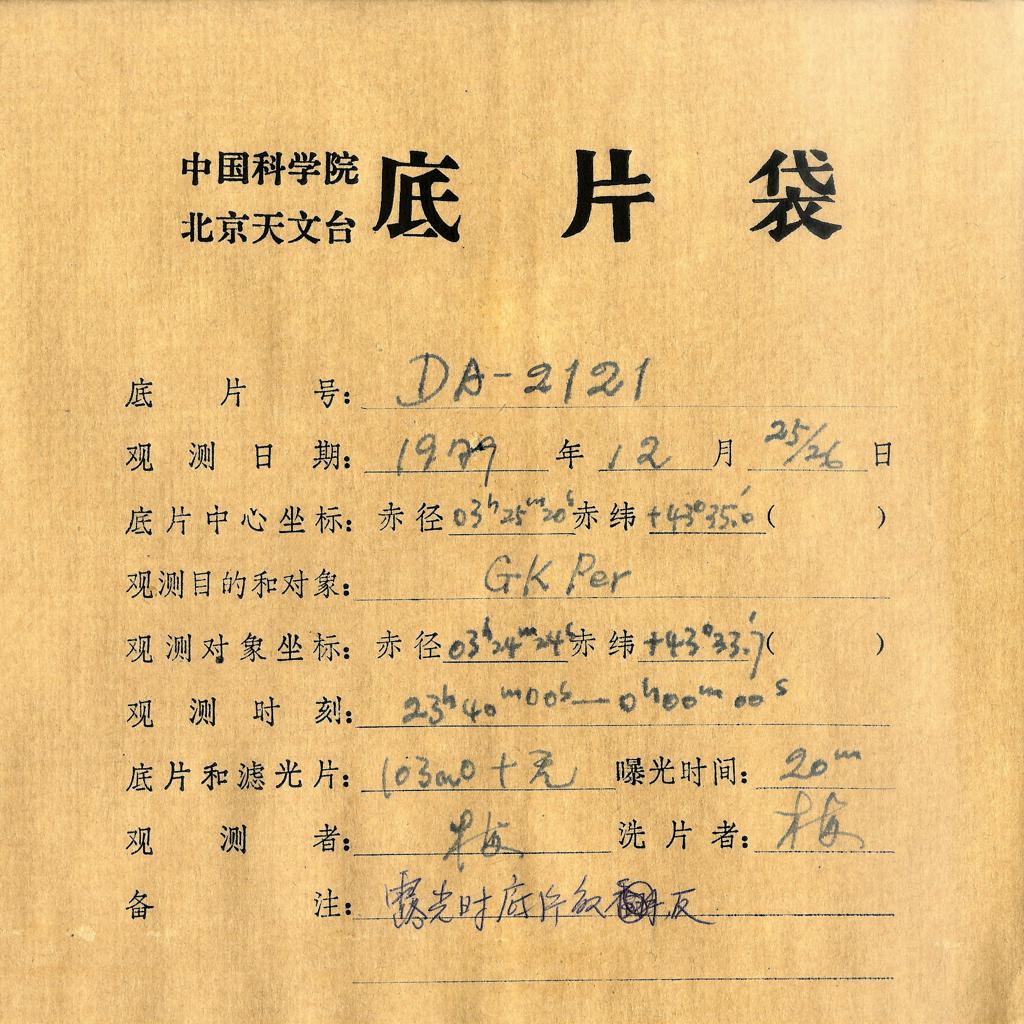 中国科学院
北京天文台
底片袋
底片号: DA-2121
观测日期: 1979 年 12 月 25/26 日
底片中心坐标: 赤径 03ʰ25ᵐ20ˢ 赤纬 +43°35.′0 ( )
观测目的和对象: GK Per
观测对象坐标: 赤径 03ʰ24ᵐ24ˢ 赤纬 +43°33.′7 ( )
观测时刻: 23ʰ40ᵐ00ˢ—0ʰ00ᵐ00ˢ
底片和滤光片: 103aO+无 曝光时间: 20ᵐ
观测者: 梅 洗片者: 梅
备注: 曝光时底片放反